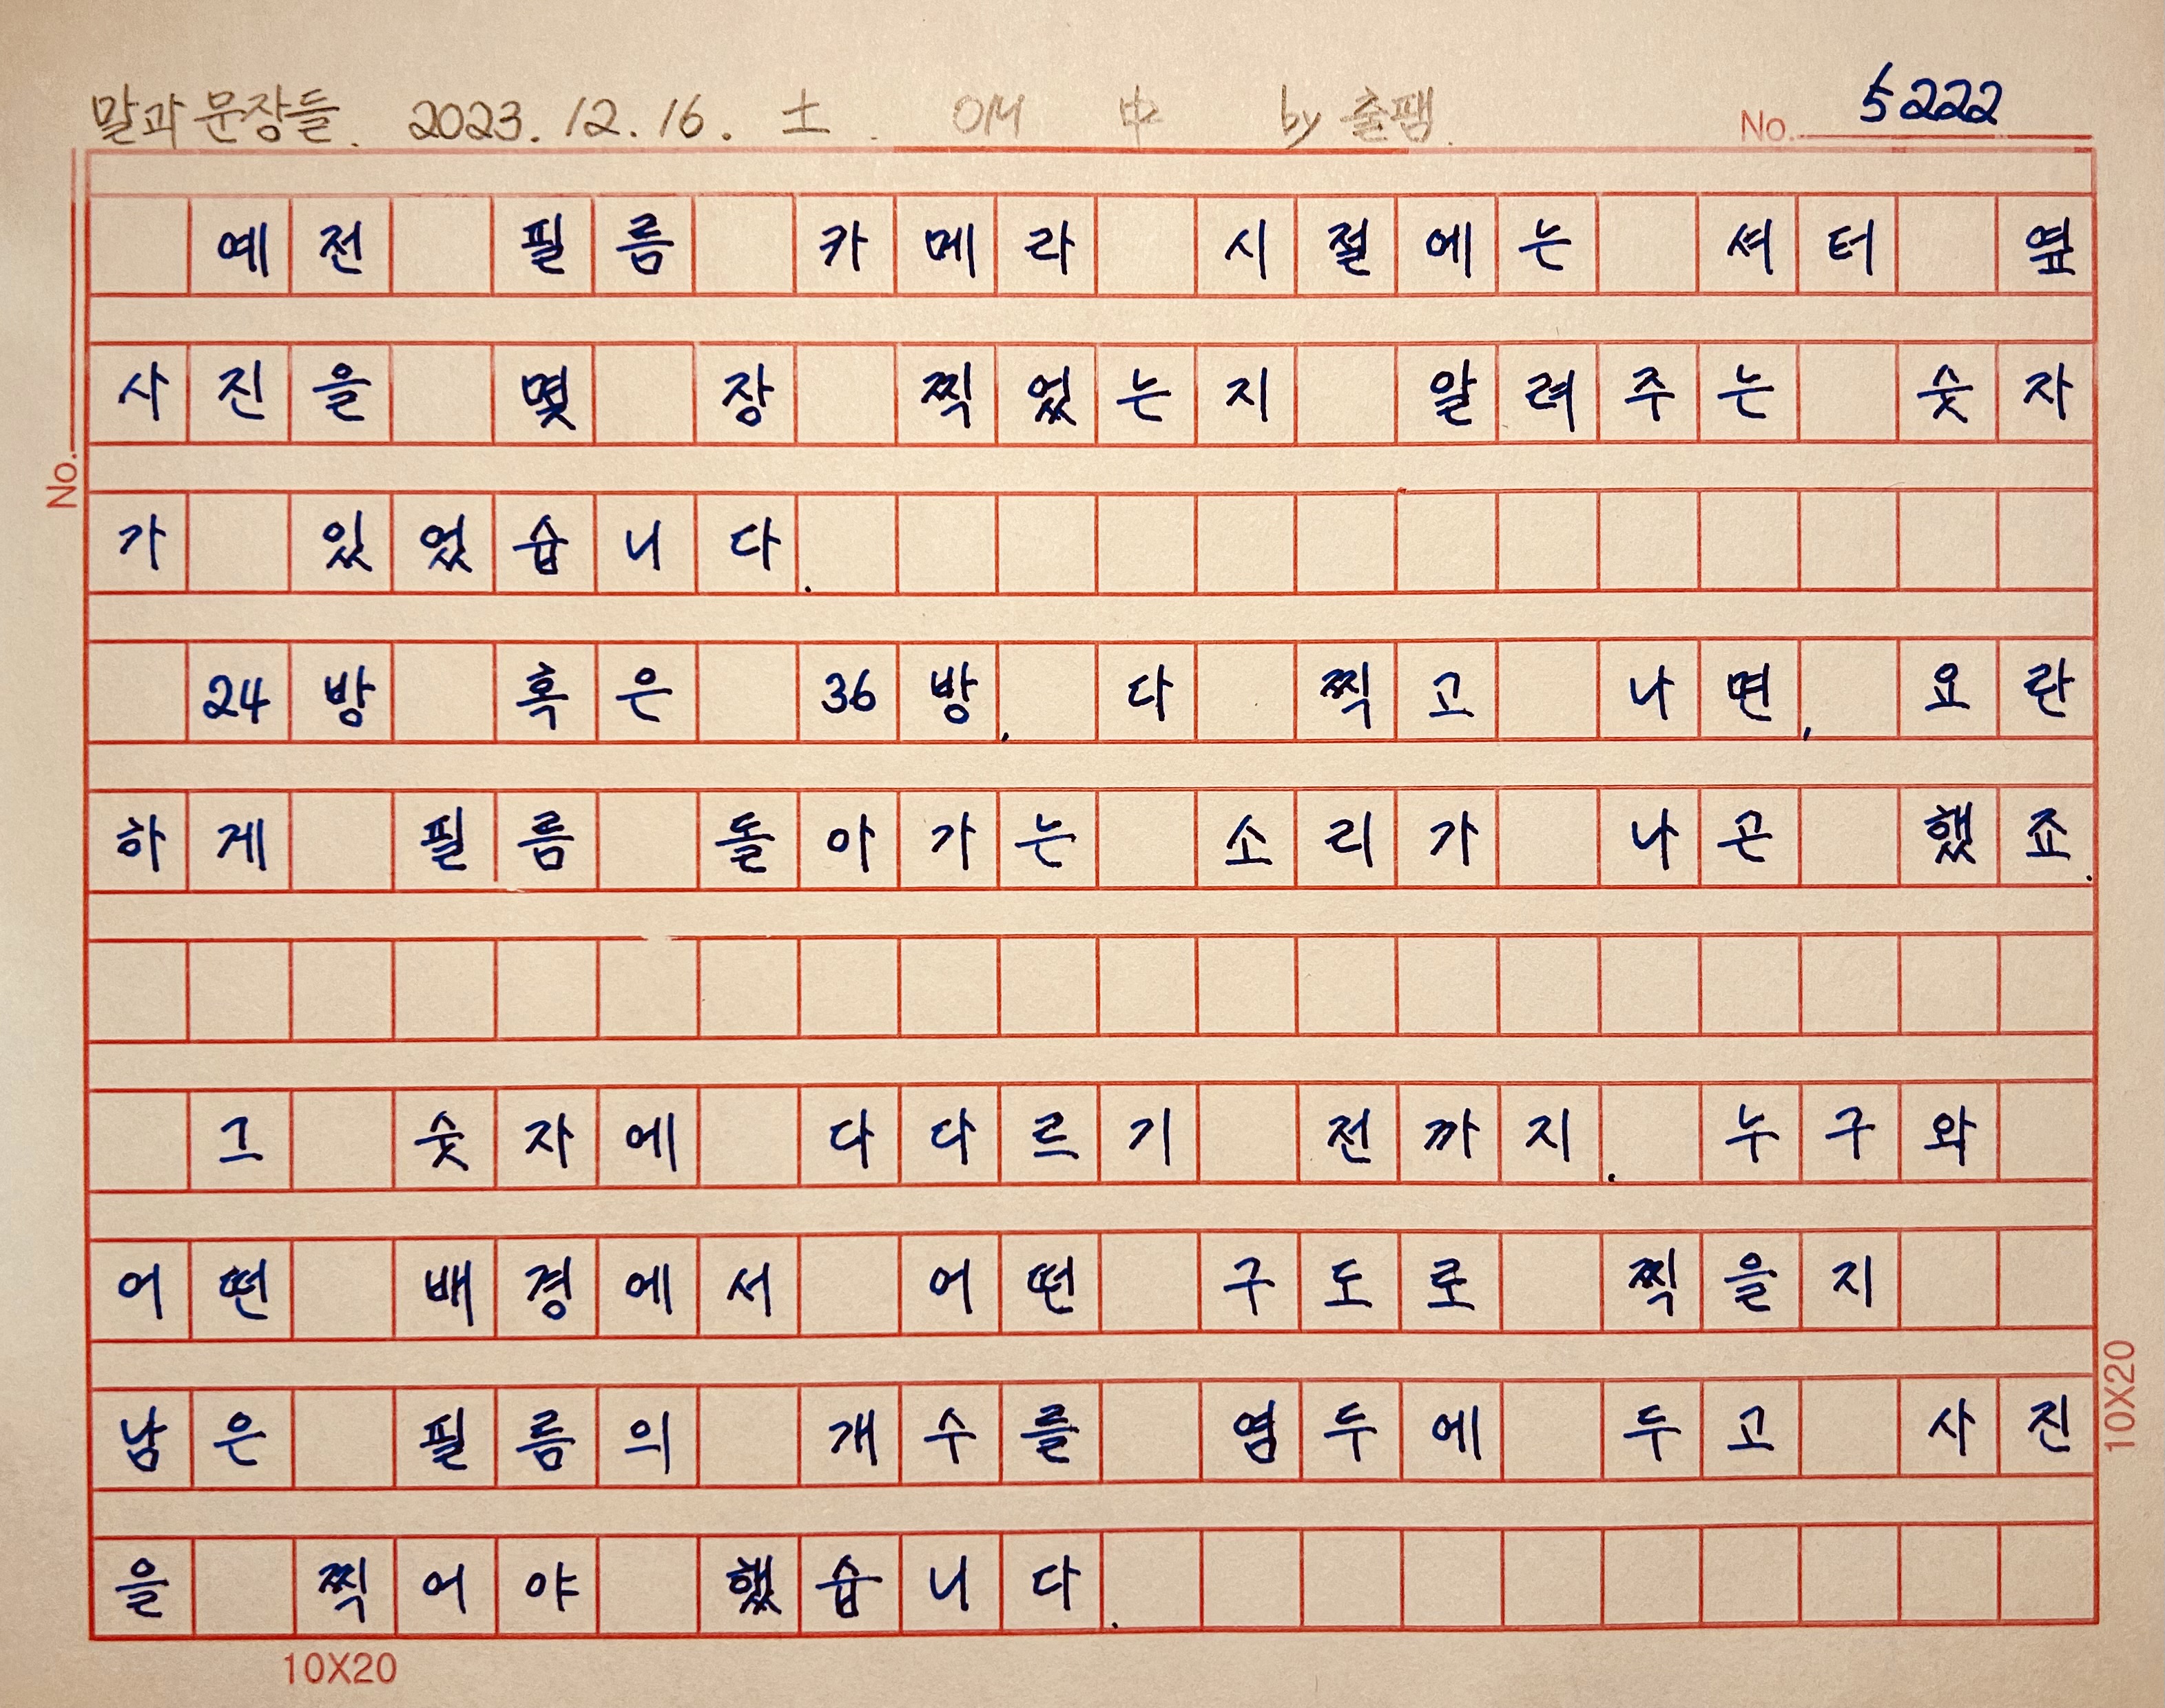 말과 문장들. 2023. 12. 16. 土. OM 中 by 출팸.
No. 5222
예전 필름 카메라 시절에는 셔터 옆
사진을 몇 장 찍었는지 알려주는 숫자
가 있었습니다.
24방 혹은 36방. 다 찍고 나면, 요란
하게 필름 돌아가는 소리가 나곤 했죠.
그 숫자에 다다르기 전까지. 누구와
어떤 배경에서 어떤 구도로 찍을지
남은 필름의 개수를 염두에 두고 사진
을 찍어야 했습니다.
No.
10X20
10X20